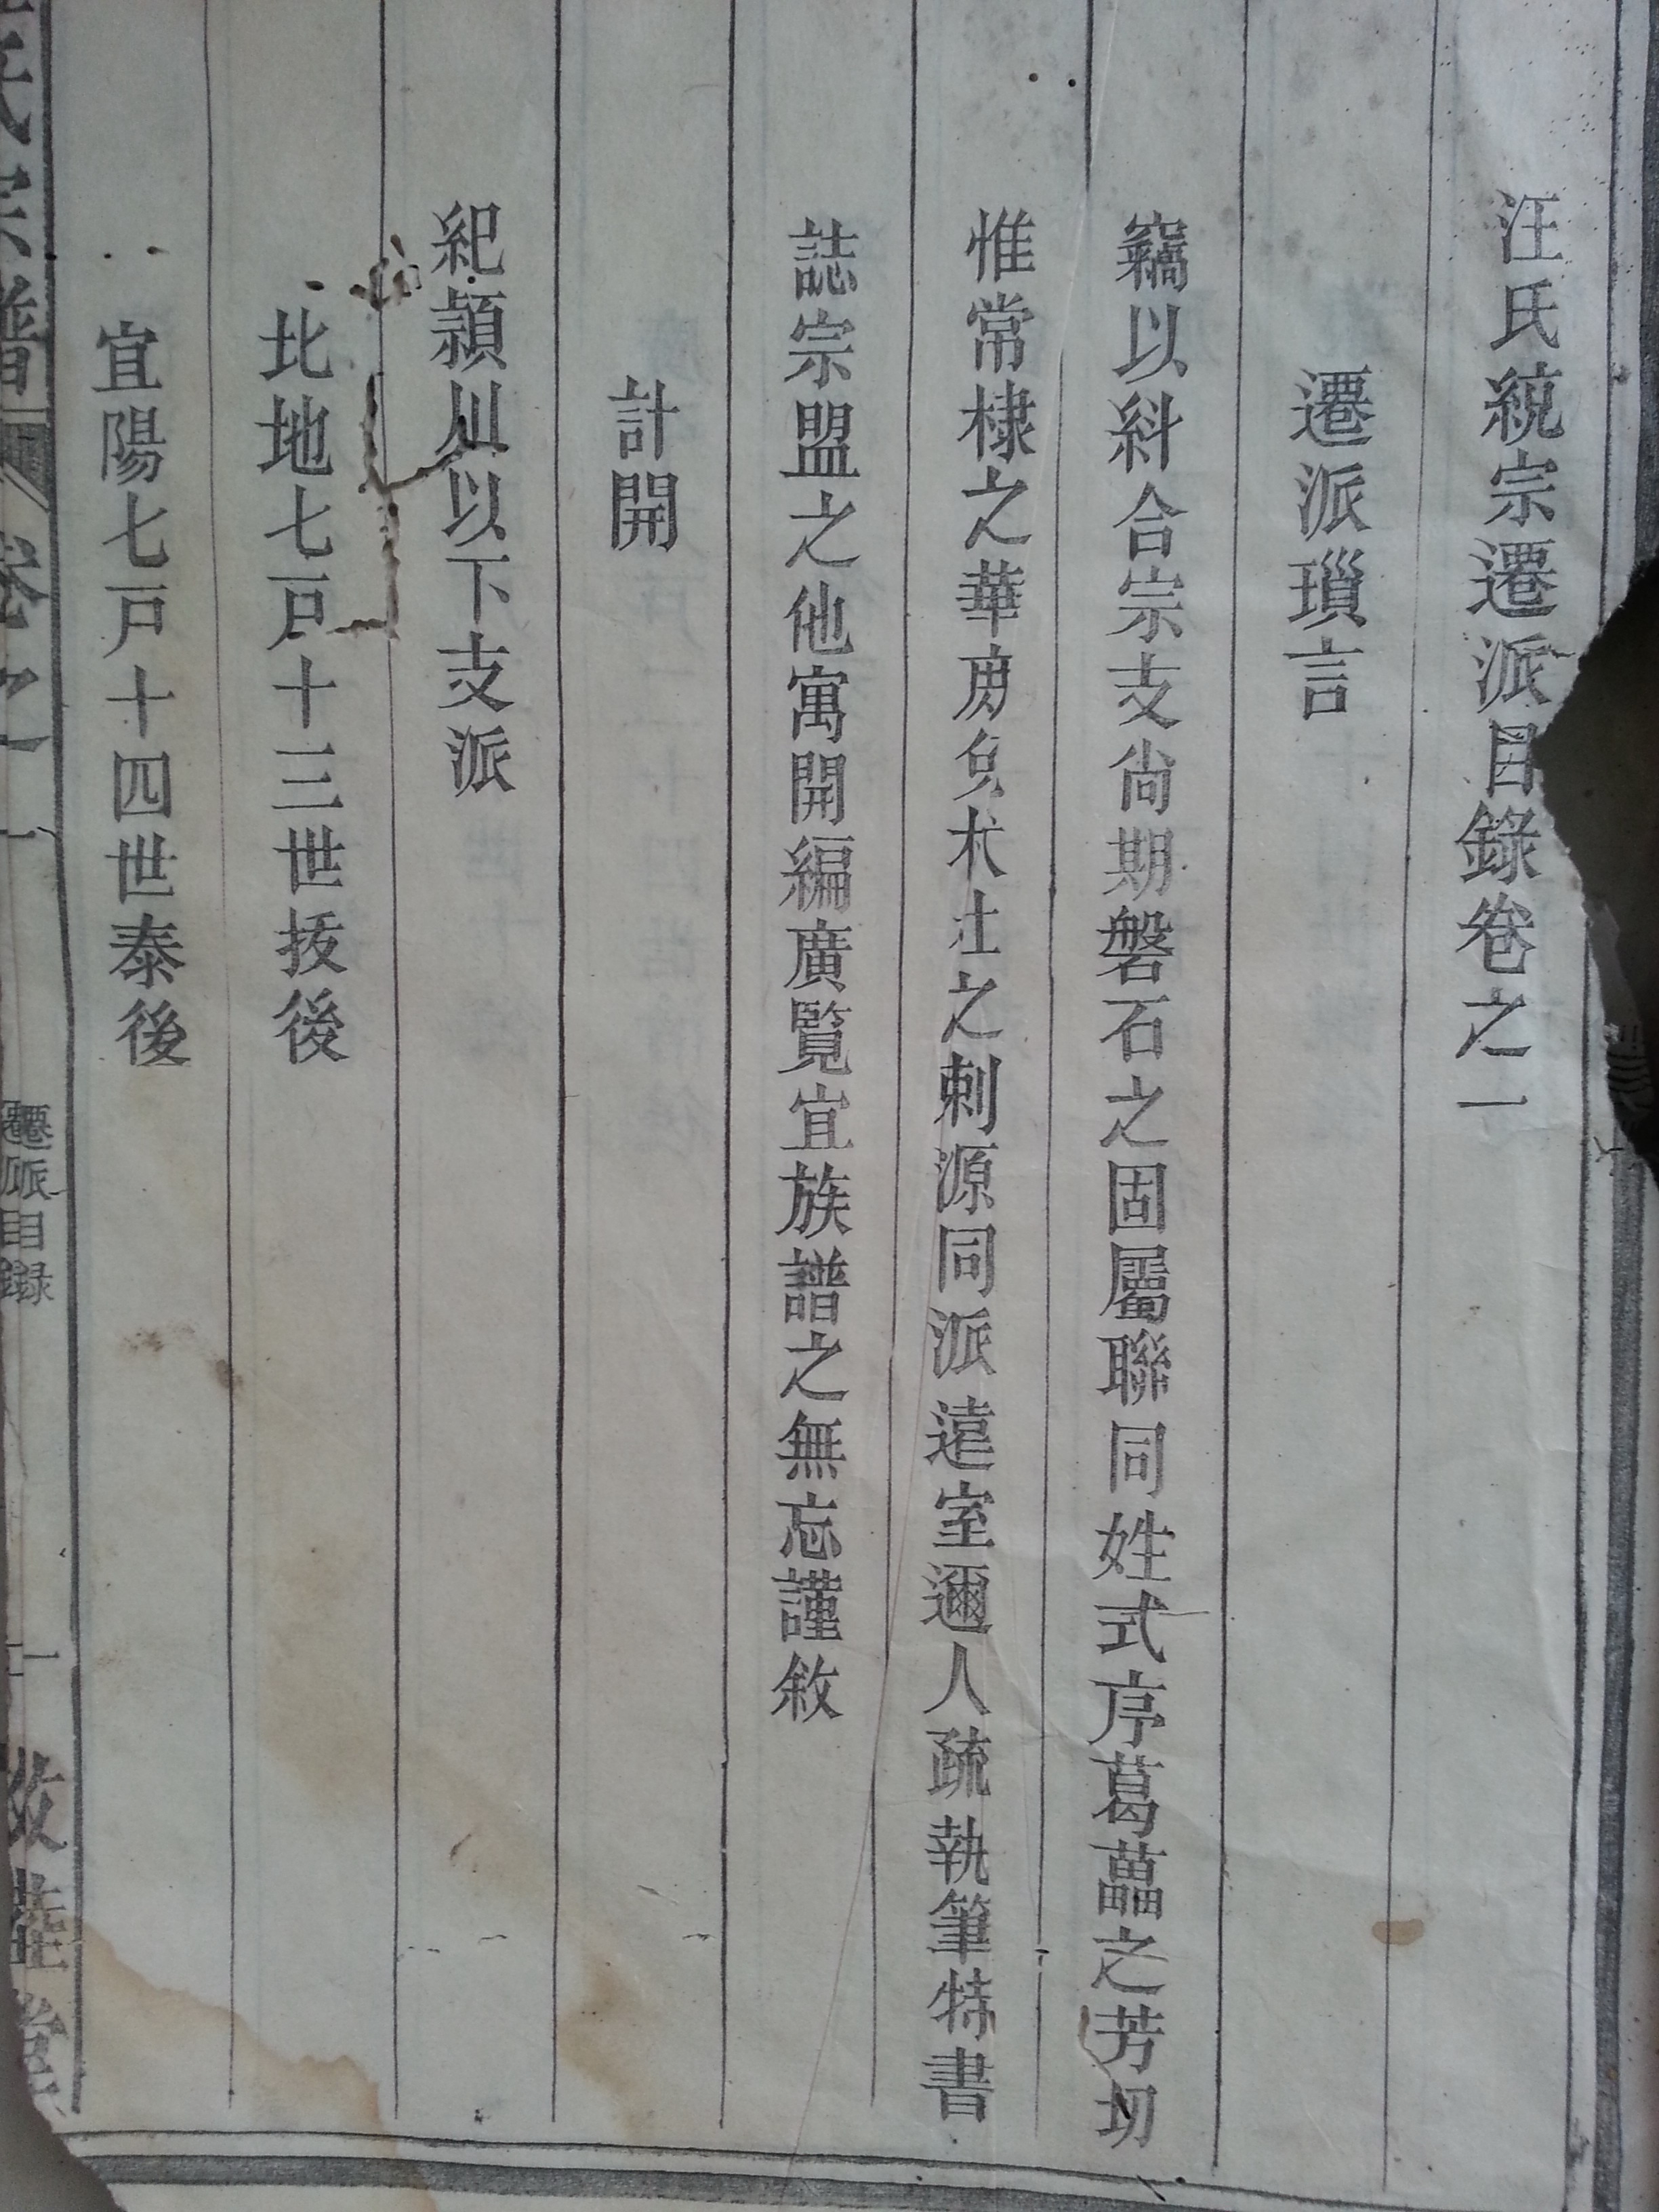 汪氏統宗遷派目錄卷之一
遷派瑣言
竊以糾合宗支尚期磐石之固屬聯同姓式序葛藟之芳切
惟常棣之華庶免杕杜之刺源同派遠室邇人疏執筆特書
誌宗盟之他寓開編廣覽宜族譜之無忘謹敘
計開
紀潁川以下支派
北地七戸十三世㧞後
宜陽七戸十四世泰後
氏宗譜 卷之一 遷派目錄 一 敦睦堂